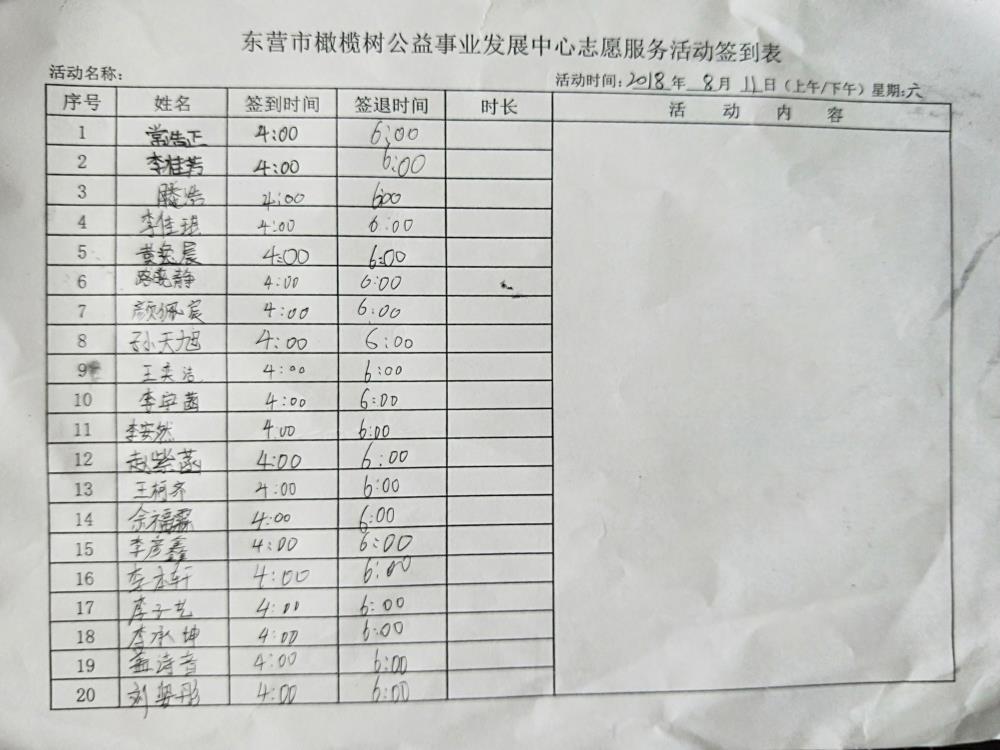 东营市橄榄树公益事业发展中心志愿服务活动签到表
活动名称: 活动时间:2018年 8月 11日(上午/下午)星期:六
序号 姓名 签到时间 签退时间 时长 活动内容
1 常浩正 4:00 6:00
2 李桂芳 4:00 6:00
3 滕浩 4:00 6:00
4 李佳琪 4:00 6:00
5 4:00 6:00
6 路晓静 4:00 6:00
7 颜佩宸 4:00 6:00
8 孙天旭 4:00 6:00
9 王奕洁 4:00 6:00
10 李宇菡 4:00 6:00
11 李安然 4:00 6:00
12 赵紫菡 4:00 6:00
13 王柯齐 4:00 6:00
14 余福霖 4:00 6:00
15 李彦鑫 4:00 6:00
16 4:00 6:00
17 李子艺 4:00 6:00
18 李承坤 4:00 6:00
19 4:00 6:00
20 4:00 6:00